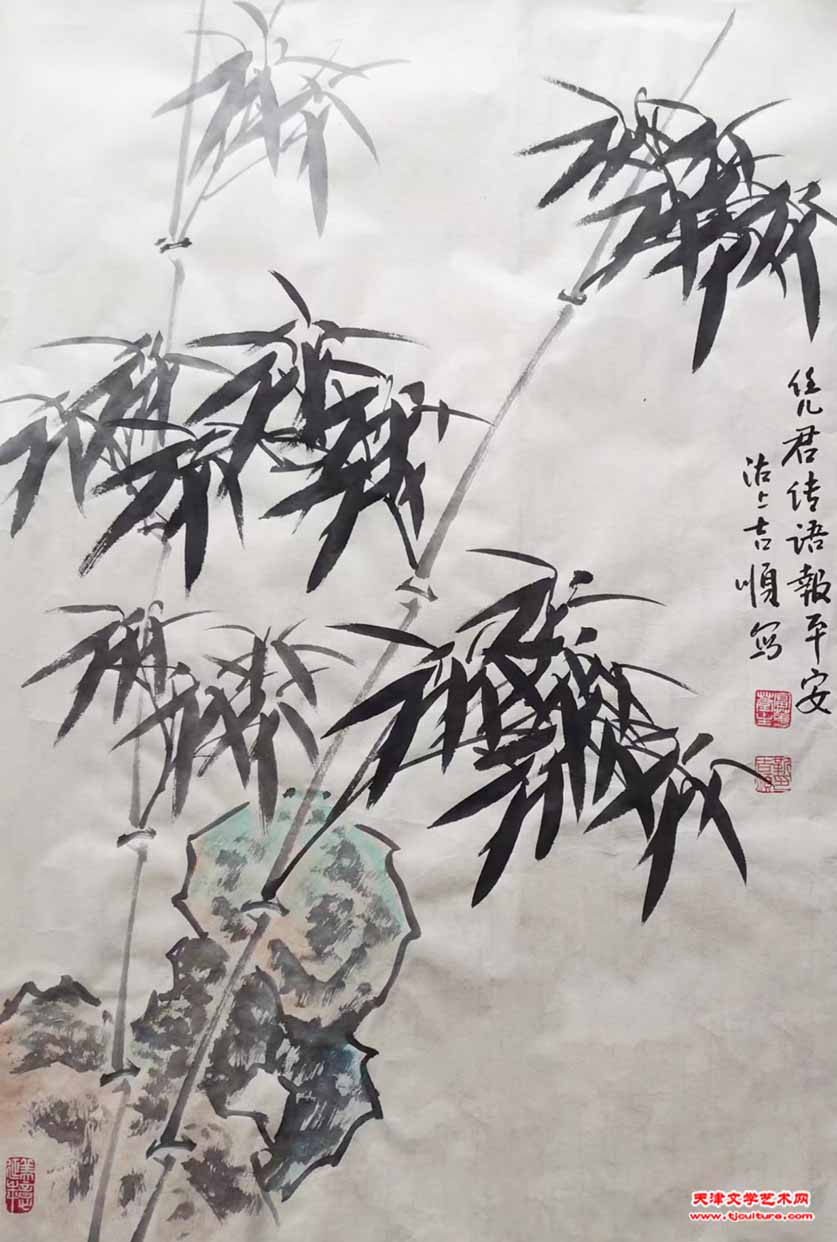 凭君传语報平安
沽上吉順写
天津文学艺术网
www.tjculture.com